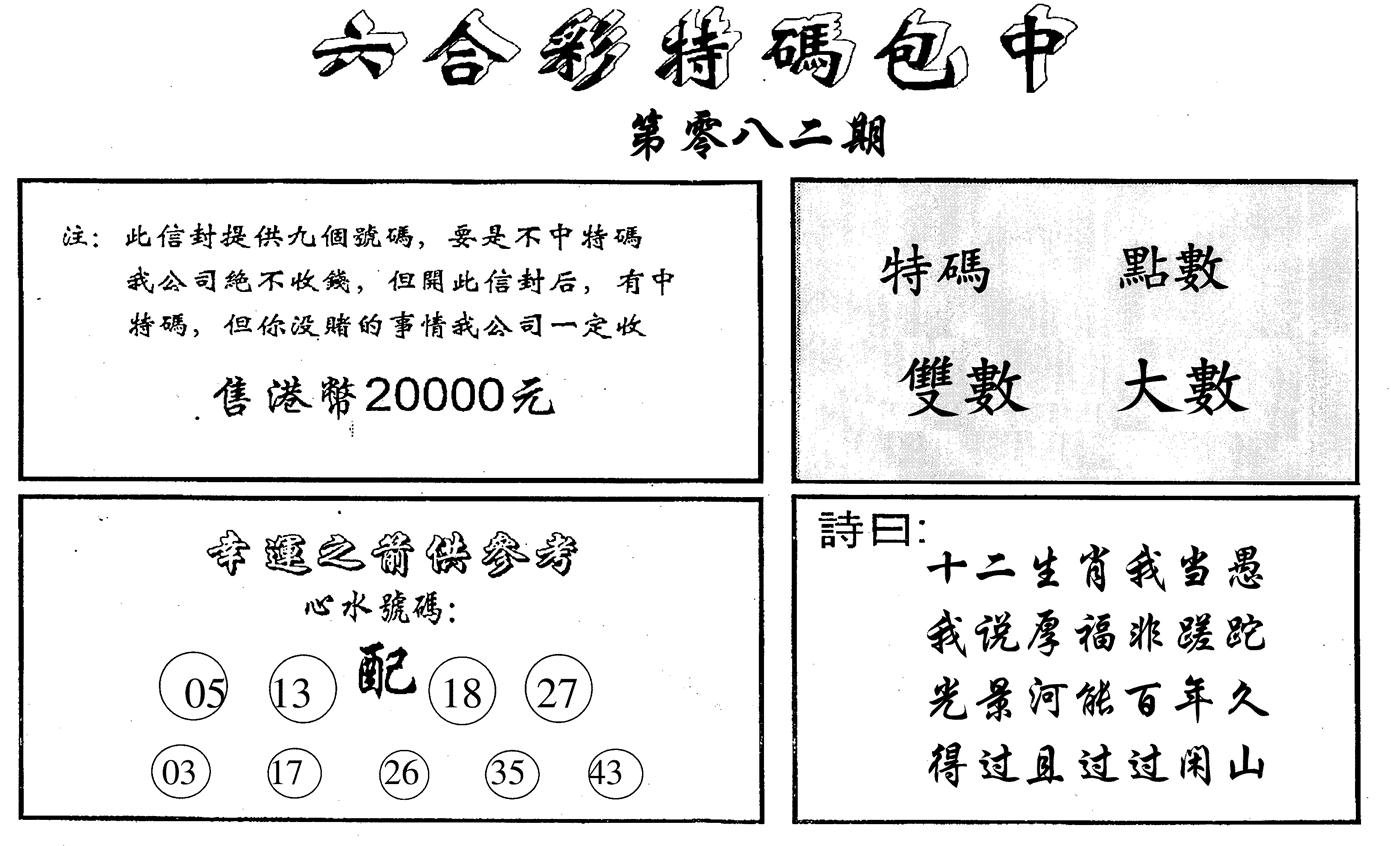 六合彩特碼包中
第零八二期
注：此信封提供九個號碼，要是不中特碼
我公司絶不收錢，但開此信封后，有中
特碼，但你没賭的事情我公司一定收
售港幣20000元
特碼 點數
雙數 大數
幸運之箭供參考
心水號碼：
05 13 配 18 27
03 17 26 35 43
詩曰：
十二生肖我当愚
我说厚福非蹉跎
光景河能百年久
得过且过过闲山